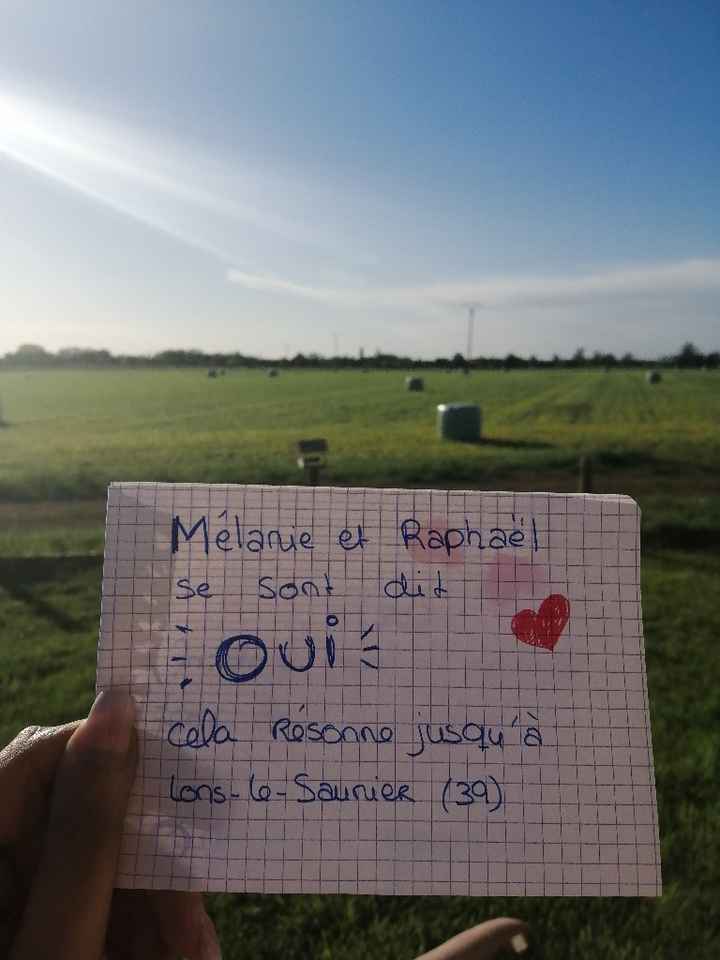 Mélanie et Raphaël
se sont dit
OUI
cela résonne jusqu'à
Lons-le-Saunier (39)